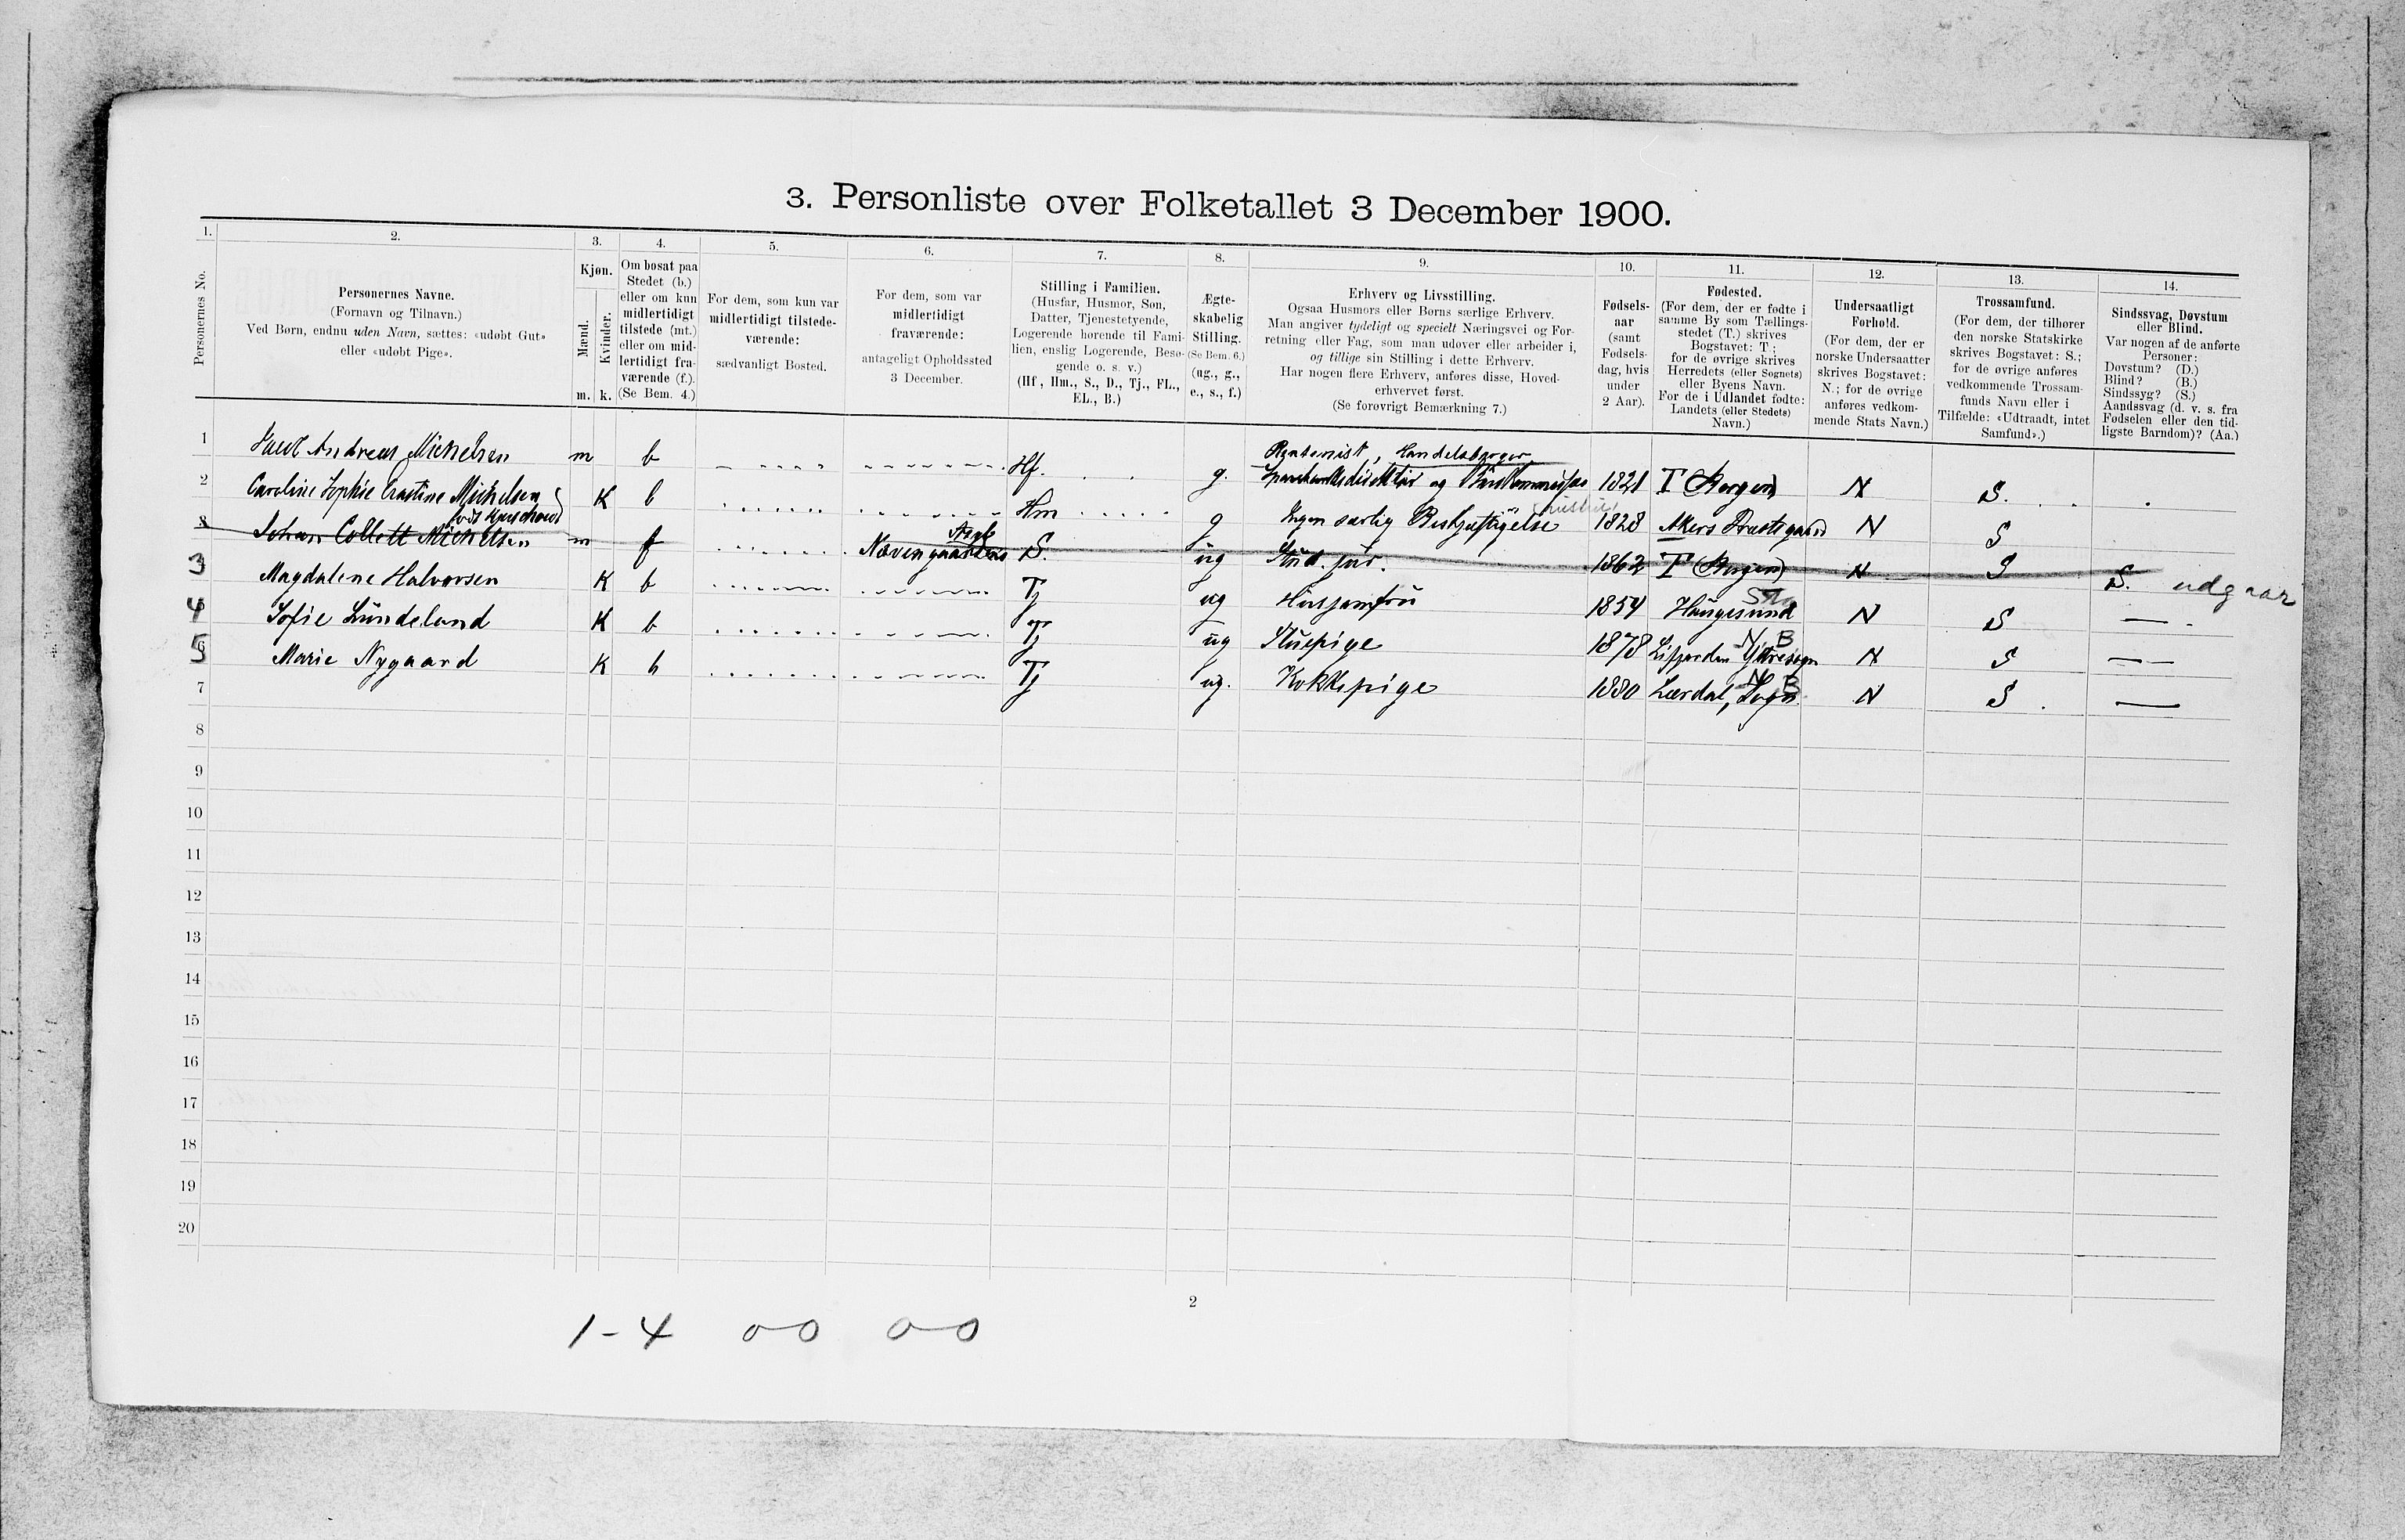 3. Personliste over Folketallet 3 December 1900.
1. 2. 3. 4. 5. 6. 7. 8. 9. 10. 11. 12. 13. 14.
Personernes No.
Personernes Navne.
(Fornavn og Tilnavn.)
Ved Børn, endnu uden Navn, sættes: «udøbt Gut»
eller «udøbt Pige».
Kjøn.
Mænd.
Kvinder.
m. k.
Om bosat paa
Stedet (b.)
eller om kun
midlertidigt
tilstede (mt.)
eller om mid-
lertidigt fra-
værende (f.).
(Se Bem. 4.)
For dem, som kun var
midlertidigt tilstede-
værende:
sædvanligt Bosted.
For dem, som var
midlertidigt
fraværende:
antageligt Opholdssted
3 December.
Stilling i Familien.
(Husfar, Husmor, Søn,
Datter, Tjenestetyende,
Logerende hørende til Fami-
lien, enslig Logerende, Besø-
gende o. s. v.)
(Hf., Hm., S., D., Tj., FL.,
EL., B.)
Ægte-
skabelig
Stilling.
(Se Bem. 6.)
(ug., g.,
e., s., f.)
Erhverv og Livsstilling.
Ogsaa Husmors eller Børns særlige Erhverv.
Man angiver tydeligt og specielt Næringsvei og For-
retning eller Fag, som man udøver eller arbeider i,
og tillige sin Stilling i dette Erhverv.
Har nogen flere Erhverv, anføres disse, Hoved-
erhvervet først.
(Se forøvrigt Bemærkning 7.)
Fødsels-
aar
(samt
Fødsels-
dag, hvis
under
2 Aar).
Fødested.
(For dem, der er fødte i
samme By som Tællings-
stedet (T.) skrives
Bogstavet: T.;
for de øvrige skrives
Herredets (eller Sognets)
eller Byens Navn.
For de i Udlandet fødte:
Landets (eller Stedets)
Navn.)
Undersaatligt
Forhold.
(For dem, der er
norske Undersaatter
skrives Bogstavet:
N.; for de øvrige
anføres vedkom-
mende Stats Navn.)
Trossamfund.
(For dem, der tilhører
den norske Statskirke
skrives Bogstavet: S.;
for de øvrige anføres
vedkommende Trossam-
funds Navn eller i
Tilfælde: «Udtraadt, intet
Samfund».)
Sindssvag, Døvstum
eller Blind.
Var nogen af de anførte
Personer:
Døvstum? (D.)
Blind? (B.)
Sindssyg? (S.)
Aandssvag (d. v. s. fra
Fødselen eller den tid-
ligste Barndom)? (Aa.)
Rentenist, Handelsborger
1 Andreas Michelsen m b Hf. g. Sparebanksdirektør og 1821 T (Bergen) N S.
2 Caroline Sophie Michelsen K b Hm g Ingen særlig Beskjæftigelse 1828 Akers Præstegaard N S
født
Asyl
3 Johan Collett Michelsen m f Nævengaardens S. ug Stud. jur. 1862 T (Bergen) N S S. udgaar
3 Magdalene Halvorsen K b Tj ug Husjomfru 1854 Haugesund N S —
4 Sofie Lundeland K b Tj ug Stuepige 1878 N S —
5 Marie Nygaard K b Tj ug. Kokkepige 1880 Lærdal, Sogn N S —
N B
N B
7
8
9
10
11
12
13
14
15
16
17
18
19
20
2
1-4 0-0 0-0